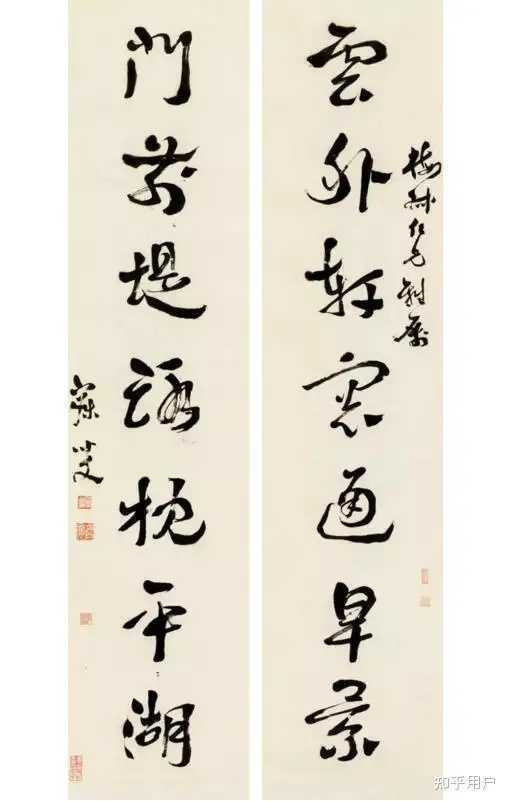 梅林仁兄雅屬
雲外軒窓通早景
門前堤路枕平湖
寐叟
知乎用户